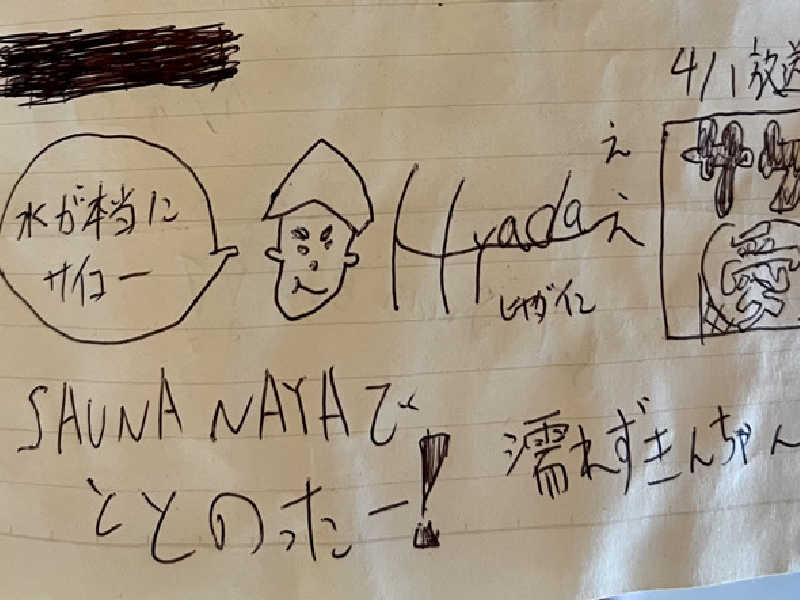 4/1 放送
水が本当に
サイコー
Hyada
ヒャダイン
サ
愛
SAUNA NAYAで
ととのったー!
濡れずきんちゃん